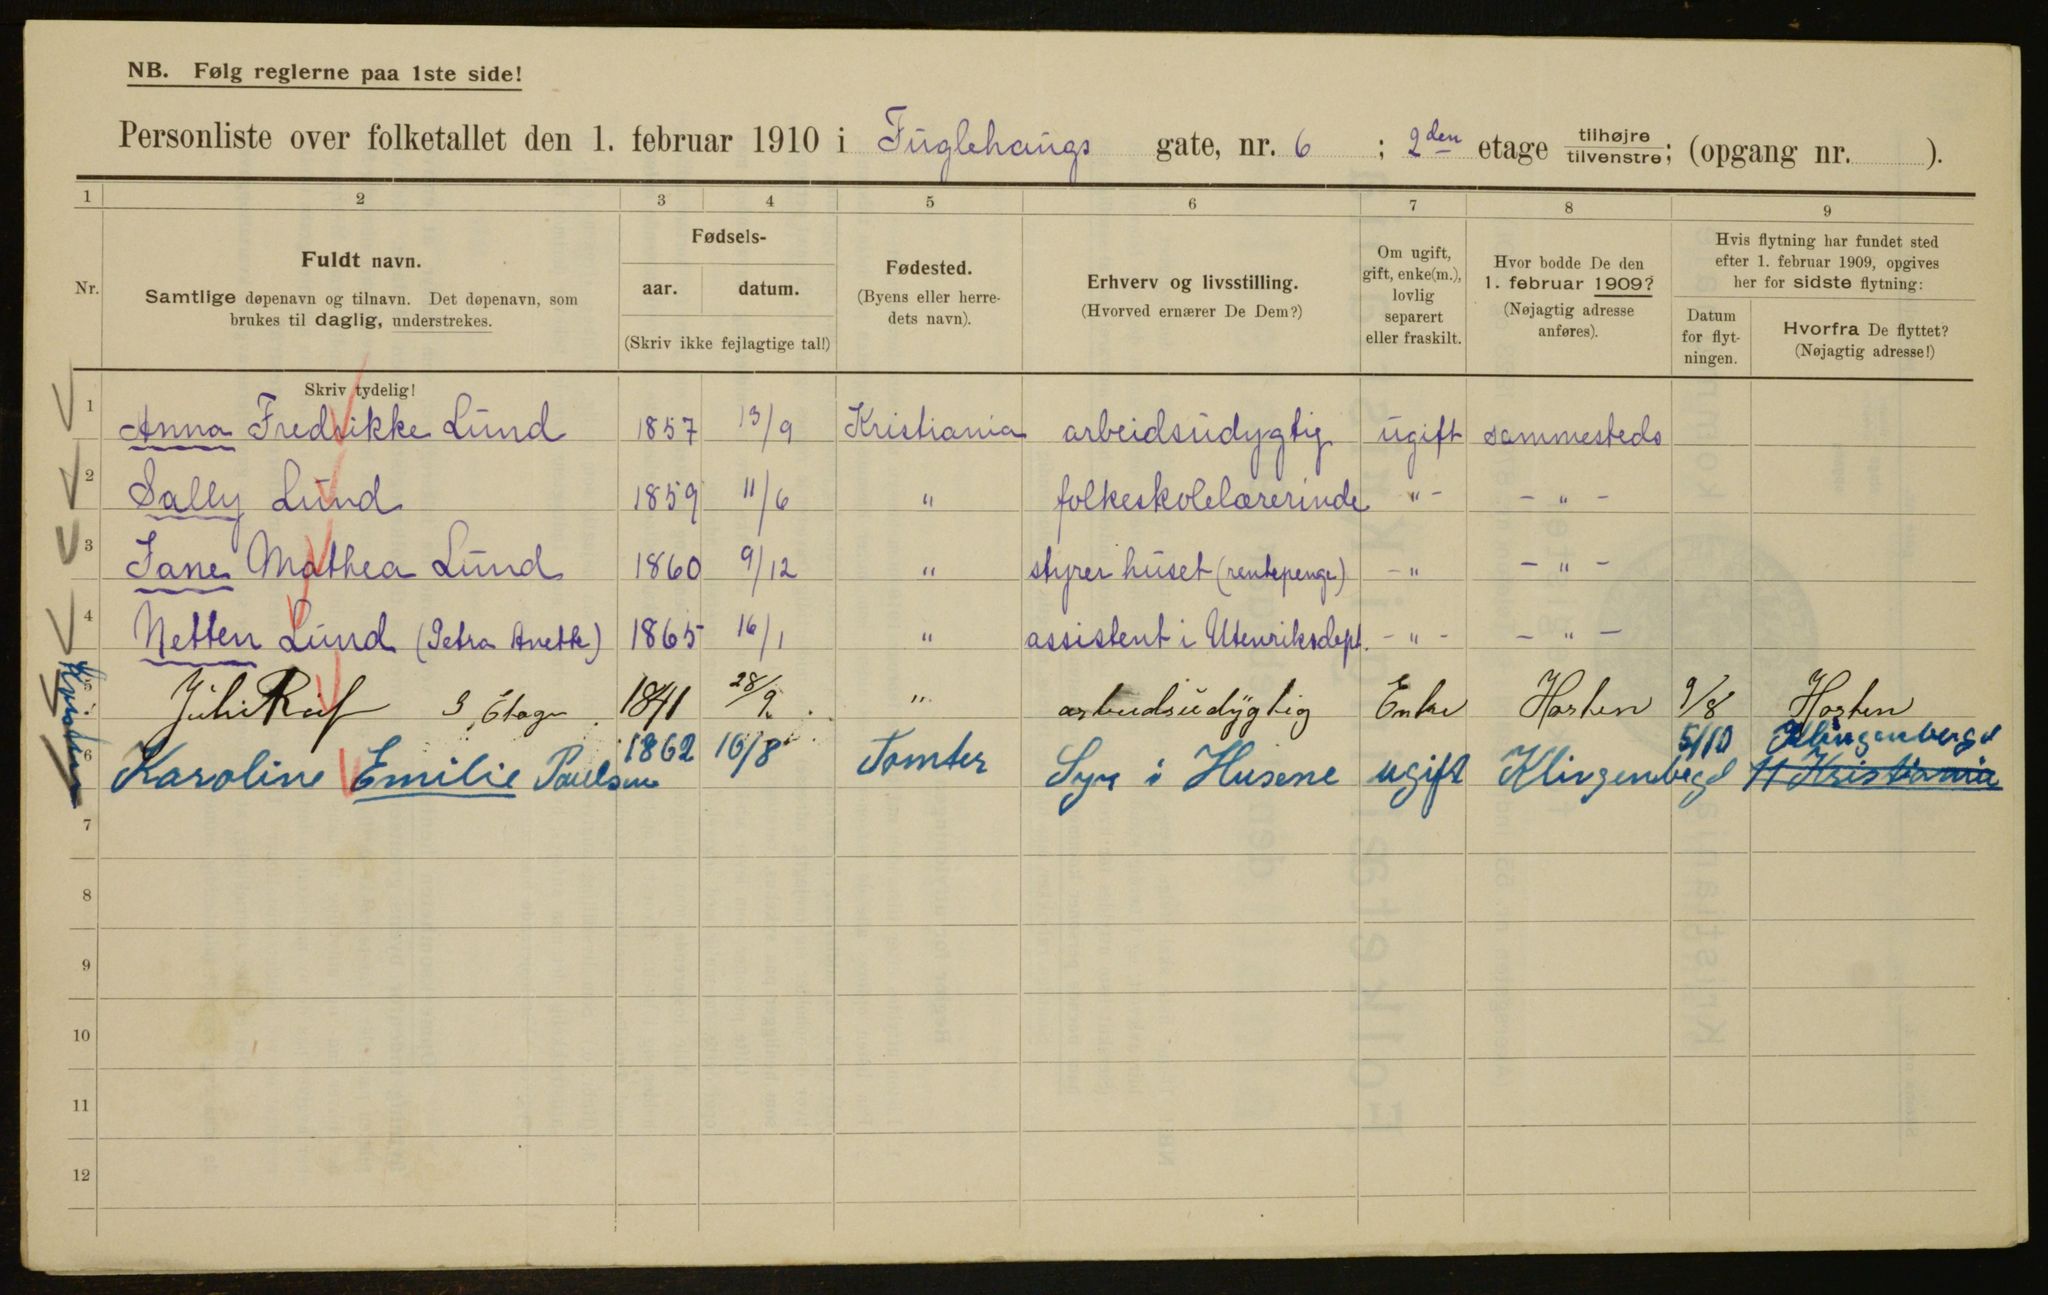 NB. Følg reglerne paa 1ste side!
Personliste over folketallet den 1. februar 1910 i Fuglehaugs gate, nr. 6 ; 2den etage tilhøjre/tilvenstre; (opgang nr. ).
1 2 3 4 5 6 7 8 9
Nr.
Fuldt navn.
Samtlige døpenavn og tilnavn. Det døpenavn, som
brukes til daglig, understrekes.
Skriv tydelig!
Fødsels-
aar. datum.
(Skriv ikke fejlagtige tal!)
Fødested.
(Byens eller herre-
dets navn).
Erhverv og livsstilling.
(Hvorved ernærer De Dem?)
Om ugift,
gift, enke(m.),
lovlig
separert
eller fraskilt.
Hvor bodde De den
1. februar 1909?
(Nøjagtig adresse
anføres).
Hvis flytning har fundet sted
efter 1. februar 1909, opgives
her for sidste flytning:
Datum
for flyt-
ningen.
Hvorfra De flyttet?
(Nøjagtig adresse!)
1 Anna Fredrikke Lund 1857 13/9 Kristiania arbeidsudygtig ugift sammesteds
2 Sally Lund 1859 11/6 " folkeskolelærerinde " - - " -
3 Jane Mathea Lund 1860 9/12 " styrer huset (rentepenge) - " - " -
4 Netten Lund (Petra Anette) 1865 16/1 " assistent i Utenriksdept. - " - - " -
5 3 Etage 1841 28/9 " arbeidsudygtig Enke Horten 9/8 Horten
6 Karoline Emilie Paulsen 1862 10/8 Tomter Syr i Husene ugift Klingenbergd 5/10 Klingenbergd
11 Kristiania
7
8
9
10
11
12